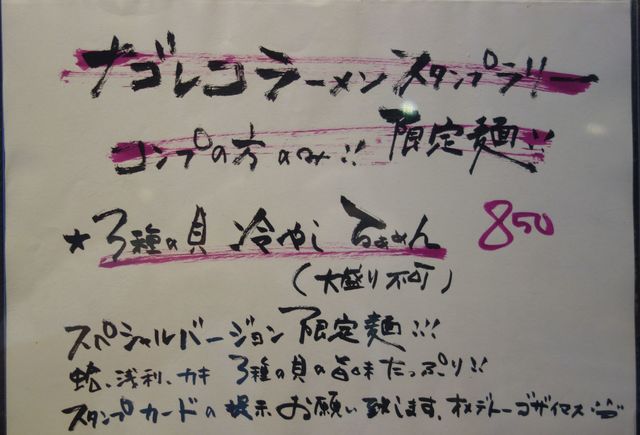 ナゴレコラーメンスタンプラリー
コンプの方のみ!! 限定麺!!
★3種の貝 冷やし らぁめん 850
(大盛り不可)
スペシャルバージョン限定麺!!!
蛤、浅利、カキ 3種の貝の旨味たっぷり!!
スタンプカードの提示お願い致します、オメデトーゴザイマス